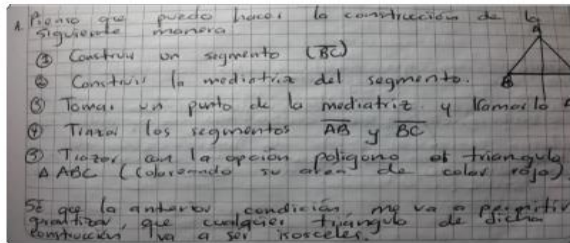 1. Pienso que puedo hacer la construcción de la
siguiente manera
① Construir un segmento (BC)
② Construir la mediatriz del segmento.
③ Tomar un punto de la mediatriz y llamarlo A
④ Trazar los segmentos AB y BC
⑤ Trazar con la opción polígono el triangulo
△ ABC (coloreando su area de color rojo)
Sé que la anterior condición me va a permitir
garantizar, que cualquier triángulo de dicha
construcción va a ser isosceles.
A
B